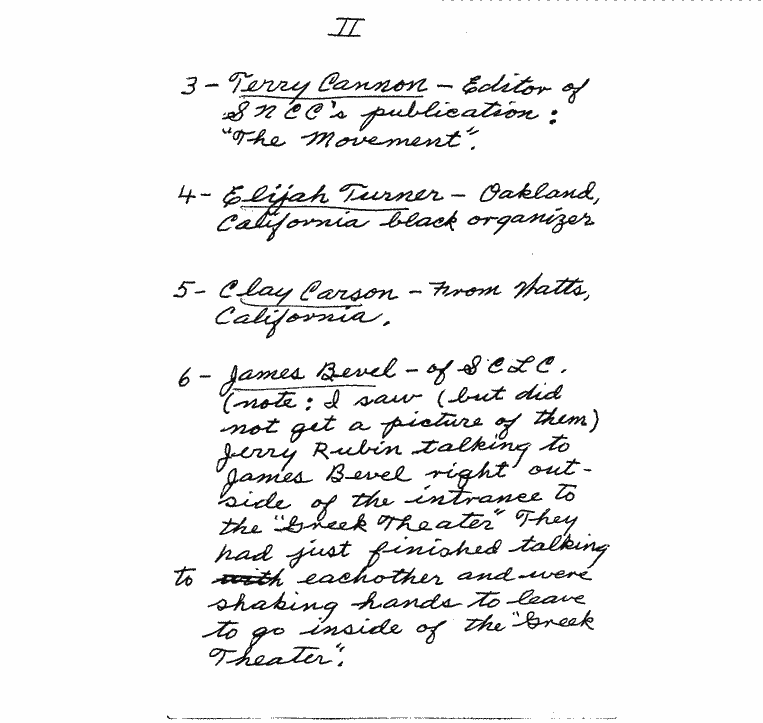 II
3 - Terry Cannon - Editor of
SNCC's publication:
"The Movement".
4 - Elijah Turner - Oakland,
California black organizer
5 - Clay Carson - From Watts,
California.
6 - James Bevel - of SCLC.
(note: I saw (but did
not get a picture of them)
Jerry Rubin talking to
James Bevel right out-
side of the intrance to
the "Greek Theater" They
had just finished talking
to with eachother and were
shaking hands to leave
to go inside of the "Greek
Theater".